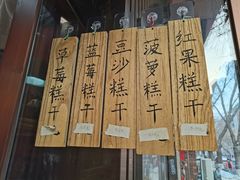 草莓糕干
蓝莓糕干
豆沙糕干
菠萝糕干
红果糕干